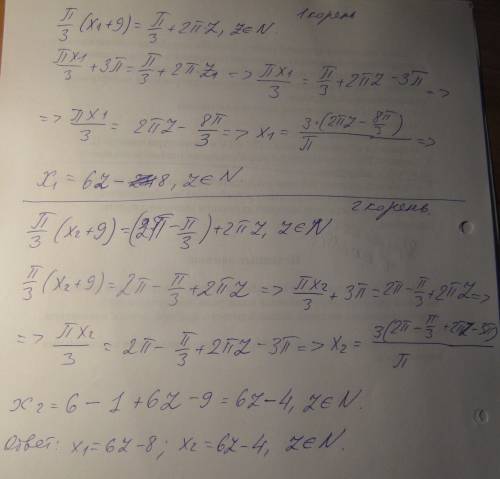 1 корень
π/3 (x₁+9) = π/3 + 2πZ, Z∈N.
πx₁/3 + 3π = π/3 + 2πZ₁ => πx₁/3 = π/3 + 2πZ - 3π =>
=> πx₁/3 = 2πZ - 8π/3 => x₁ = 3·(2πZ - 8π/3)/π =>
x₁ = 6Z - 8, Z∈N.
2 корень.
π/3 (x₂+9) = (2π - π/3) + 2πZ, Z∈N
π/3 (x₂+9) = 2π - π/3 + 2πZ => πx₂/3 + 3π = 2π - π/3 + 2πZ =>
=> πx₂/3 = 2π - π/3 + 2πZ - 3π => x₂ = 3(2π - π/3 + 2πZ - 3π)/π
x₂ = 6 - 1 + 6Z - 9 = 6Z - 4, Z∈N.
Ответ: x₁ = 6Z - 8; x₂ = 6Z - 4, Z∈N.